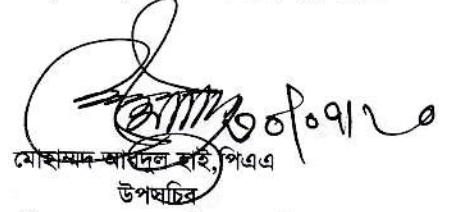 ৩০/০৭/২০
মোহাম্মদ আবদুল হাই, পিএএ
উপসচিব